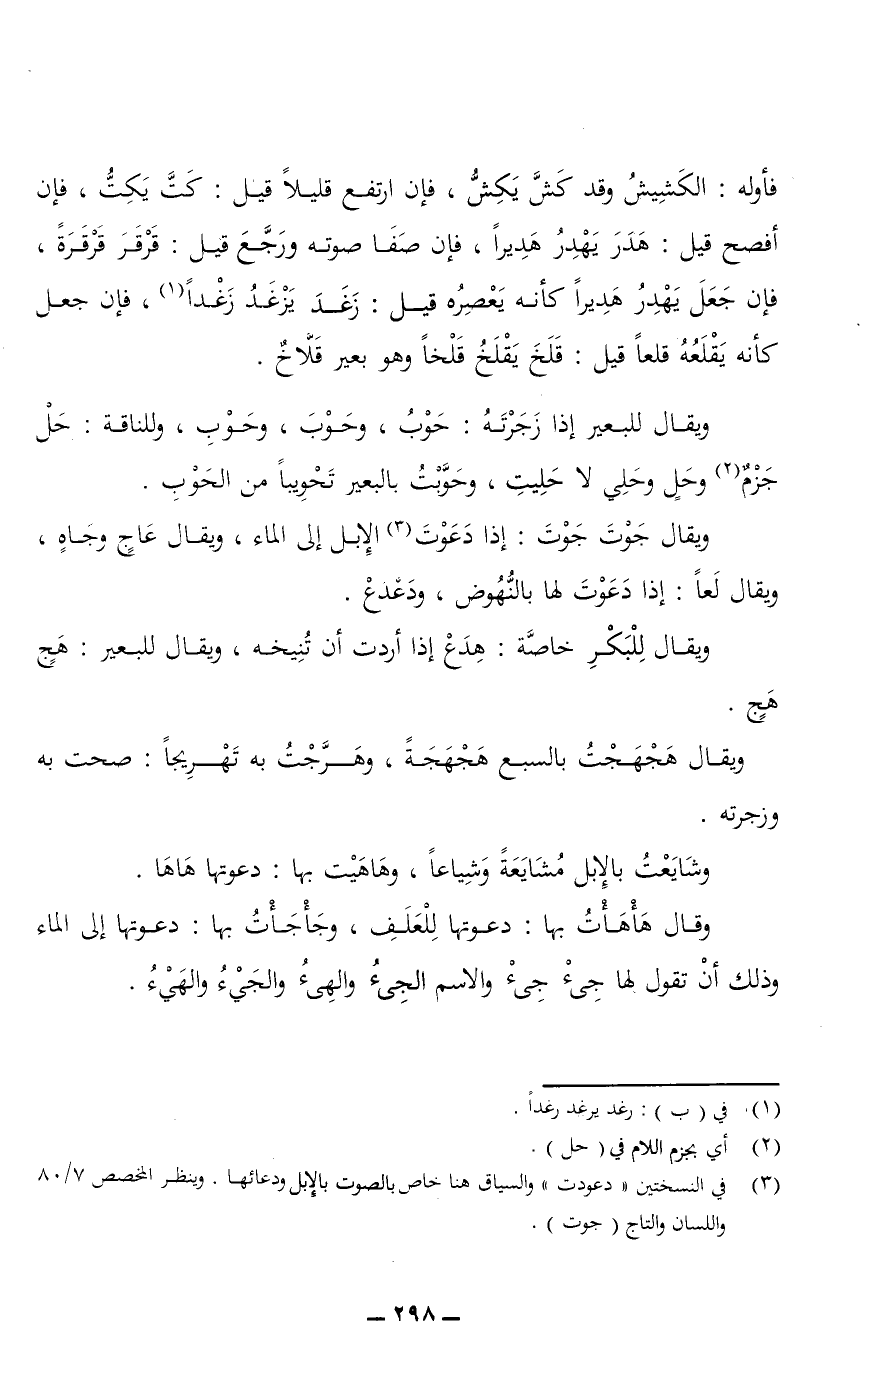 فأوله : الكَشِيشُ وقد كَشَّ يَكِشُّ ، فإن ارتفع قليلاً قيل : كَتَّ يَكِتُّ ، فإن
أفصح قيل : هَدَرَ يَهْدِرُ هَدِيراً ، فإن صَفَا صوته ورَجَّعَ قيل : قَرْقَرَ قَرْقَرَةً ،
فإن جَعَلَ يَهْدِرُ هَدِيراً كأنه يَعْصِرُه قيل : زَغَدَ يَزْغَدُ زَغْداً(١) ، فإن جعل
كأنه يَقْلَعُهُ قلعاً قيل : قَلَخَ يَقْلَخُ قَلْخاً وهو بعير قَلَّاخٌ .
ويقال للبعير إذا زَجَرْتَهُ : حَوْبُ ، وحَوْبَ ، وحَوْبِ ، وللناقة : حَلْ
جَزْمٌ(٢) وحَلٍ وحَلِي لا حَلِيتِ ، وحَوَّبْتُ بالبعير تَحْوِيباً من الحَوْبِ .
ويقال جَوْتَ جَوْتَ : إذا دَعَوْتَ(٣) الإبل إلى الماء ، ويقال عَاجٍ وجَاهٍ ،
ويقال لَعاً : إذا دَعَوْتَ لها بالنُّهُوض ، ودَعْدَعْ .
ويقال لِلْبَكْرِ خاصَّة : هِدَعْ إذا أردت أن تُنِيخه ، ويقال للبعير : هَجٍ
هَجٍ .
ويقال هَجْهَجْتُ بالسبع هَجْهَجَةً ، وهَرَّجْتُ به تَهْرِيجاً : صحت به
وزجرته .
وشَايَعْتُ بالإبل مُشَايَعَةً وَشِياعاً ، وهَاهَيْت بها : دعوتها هَاهَا .
وقال هَأْهَأْتُ بها : دعوتها لِلْعَلَفِ ، وجَأْجَأْتُ بها : دعوتها إلى الماء
وذلك أنْ تقول لها جِىءْ جِىءْ والاسم الجِىءُ والهِىءُ والجَيْءُ والهَيْءُ .
(١) في ( ب ) : رغد يرغد رغداً .
(٢) أي بجزم اللام في ( حل ) .
(٣) في النسختين « دعودت » والسياق هنا خاص بالصوت بالإبل ودعائها . وينظر المخصص ٨٠/٧
واللسان والتاج ( جوت ) .
ــ ٢٩٨ ــ